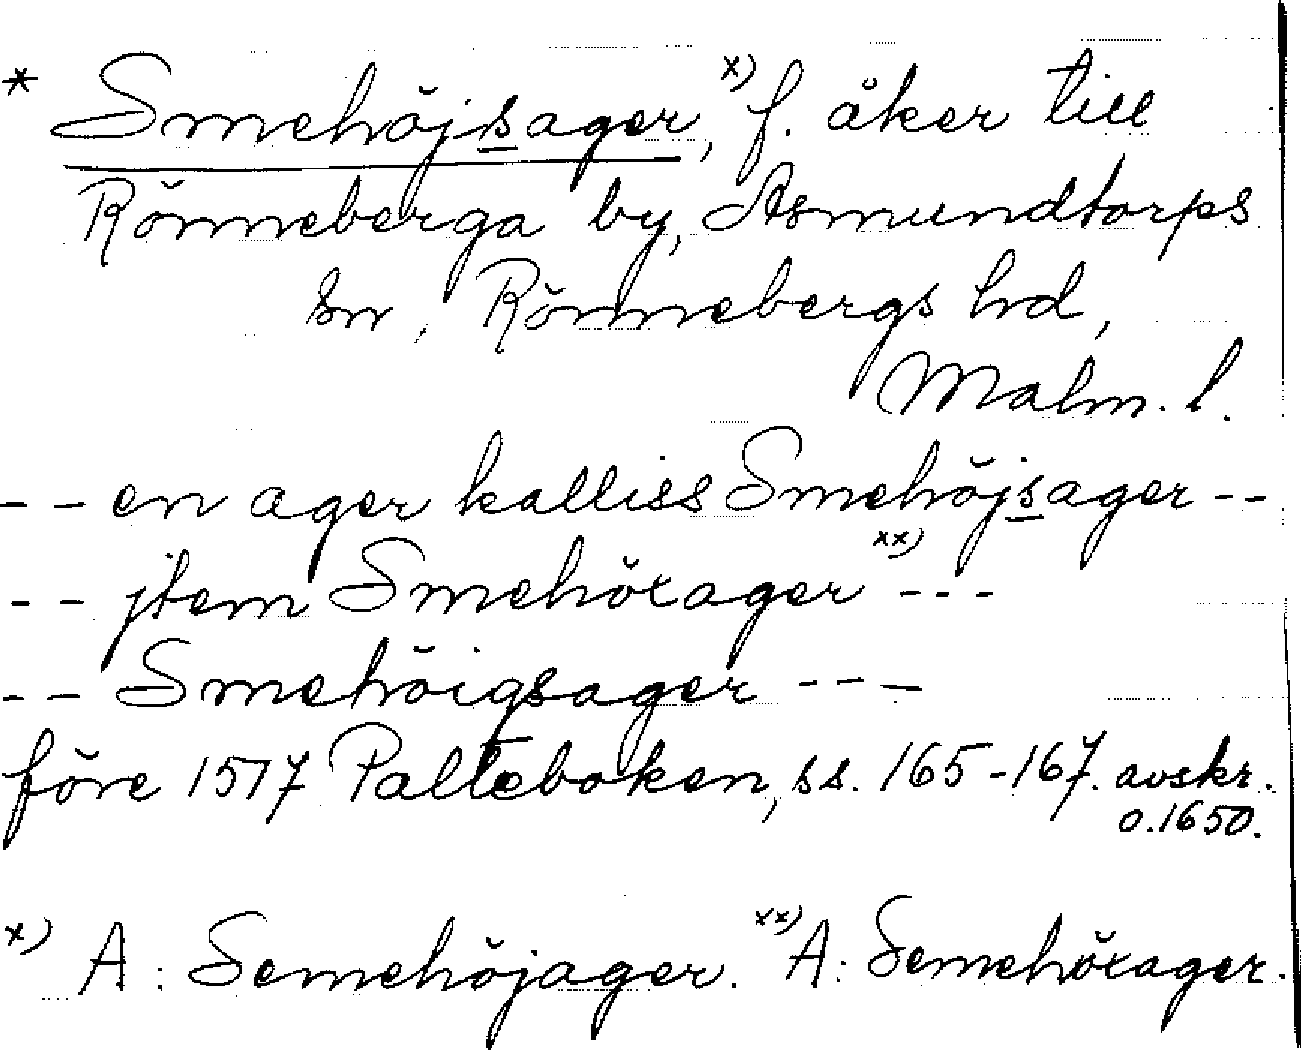 * Smehöjsager, x) f. åker till
Rönneberga by, Asmundtorps
sn, Rönnebergs hd,
Malm. l.
-- en ager kalliss Smehöjsager --
-- jtem Smehöxager xx) ---
-- Smehöigsager ---
före 1517 Palteboken, ss. 165-167. avskr.
o.1650.
x) A: Semehöjager. xx) A: Semehöxager.